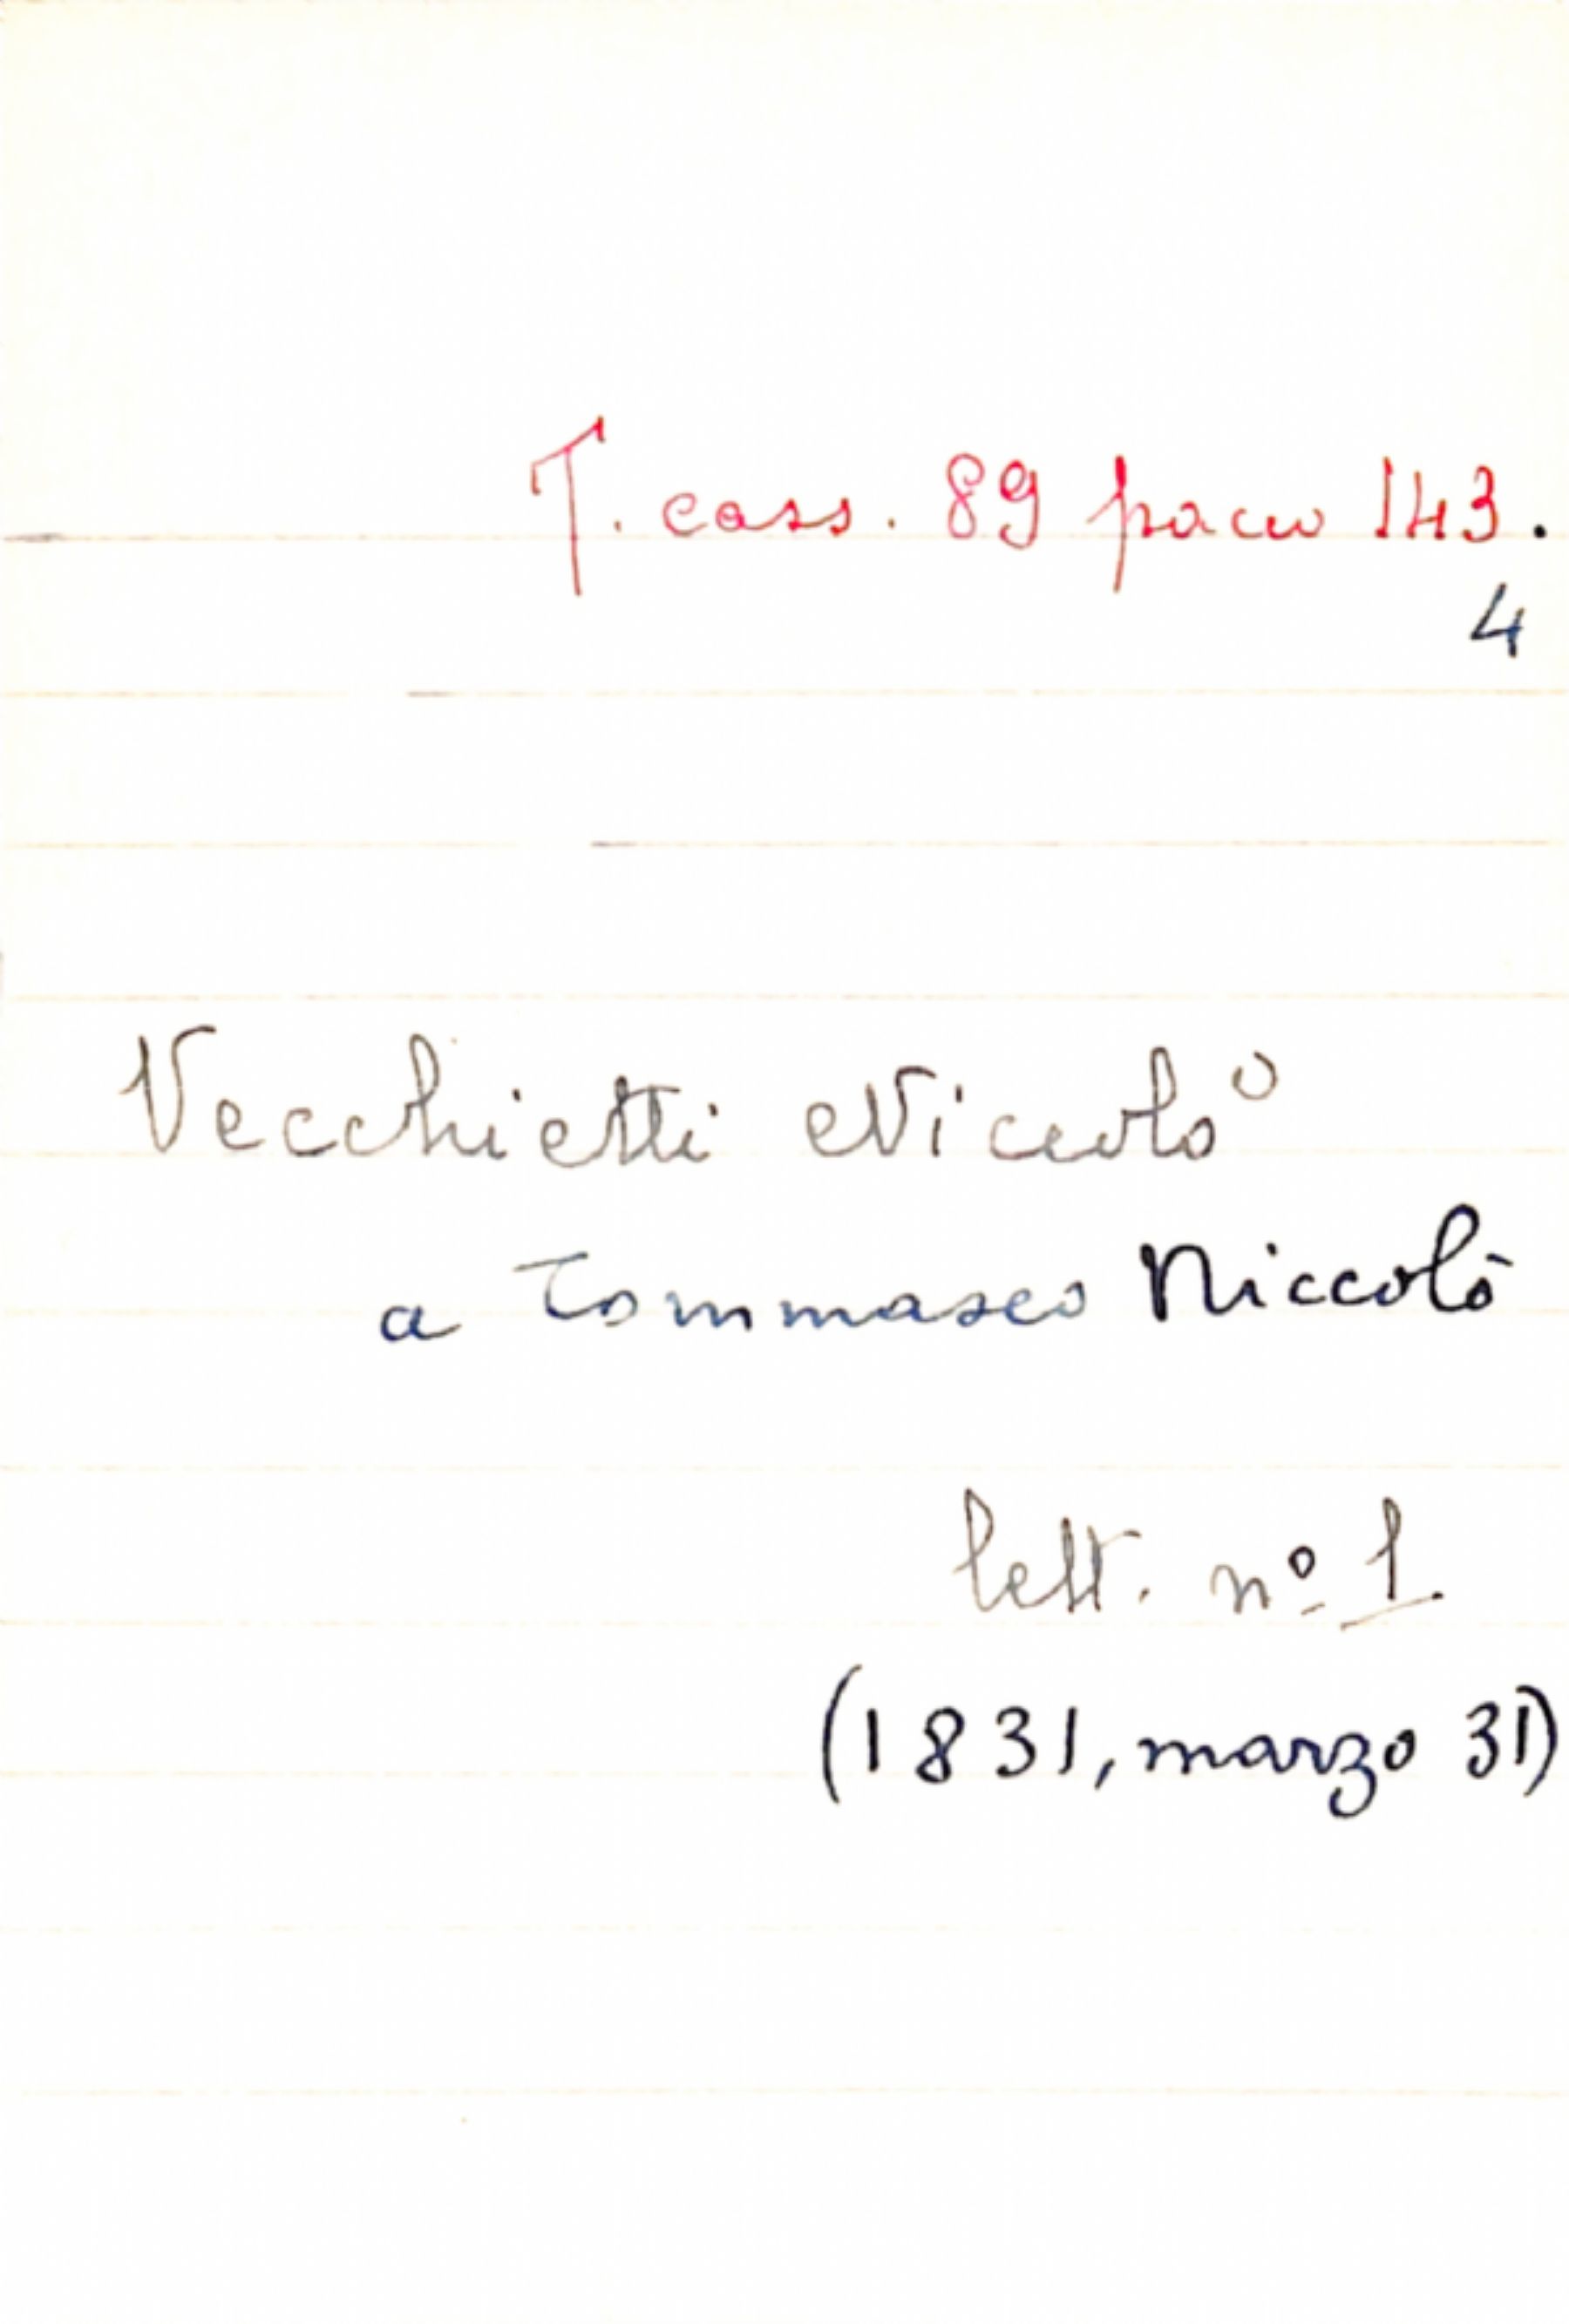 T. cass. 89 pacco 143.
4
Vecchietti Niccolò
a Tommaseo Niccolò
lett. nº 1.
(1831, marzo 31)